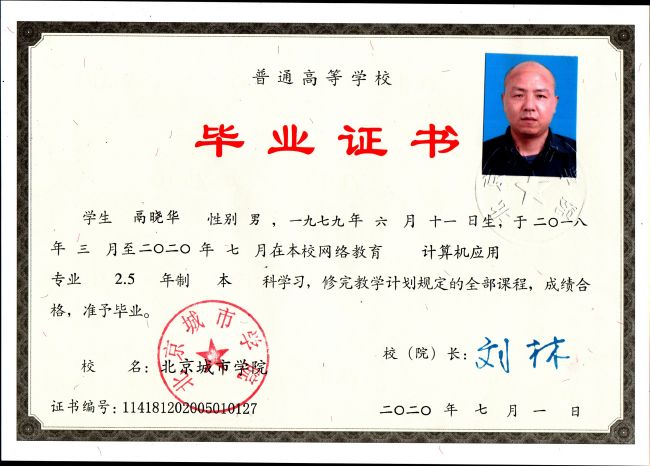 普通高等学校
毕业证书
学生 高晓华 性别 男 ，一九七九年 六 月 十一 日生，于 二〇一八
年 三 月至二〇二〇 年 七 月在本校网络教育 计算机应用
专业 2.5 年制 本 科学习，修完教学计划规定的全部课程，成绩合
格，准予毕业。
北京城市学院
校 名：北京城市学院
校（院）长：刘林
证书编号：114181202005010127
二〇二〇 年 七 月 一 日